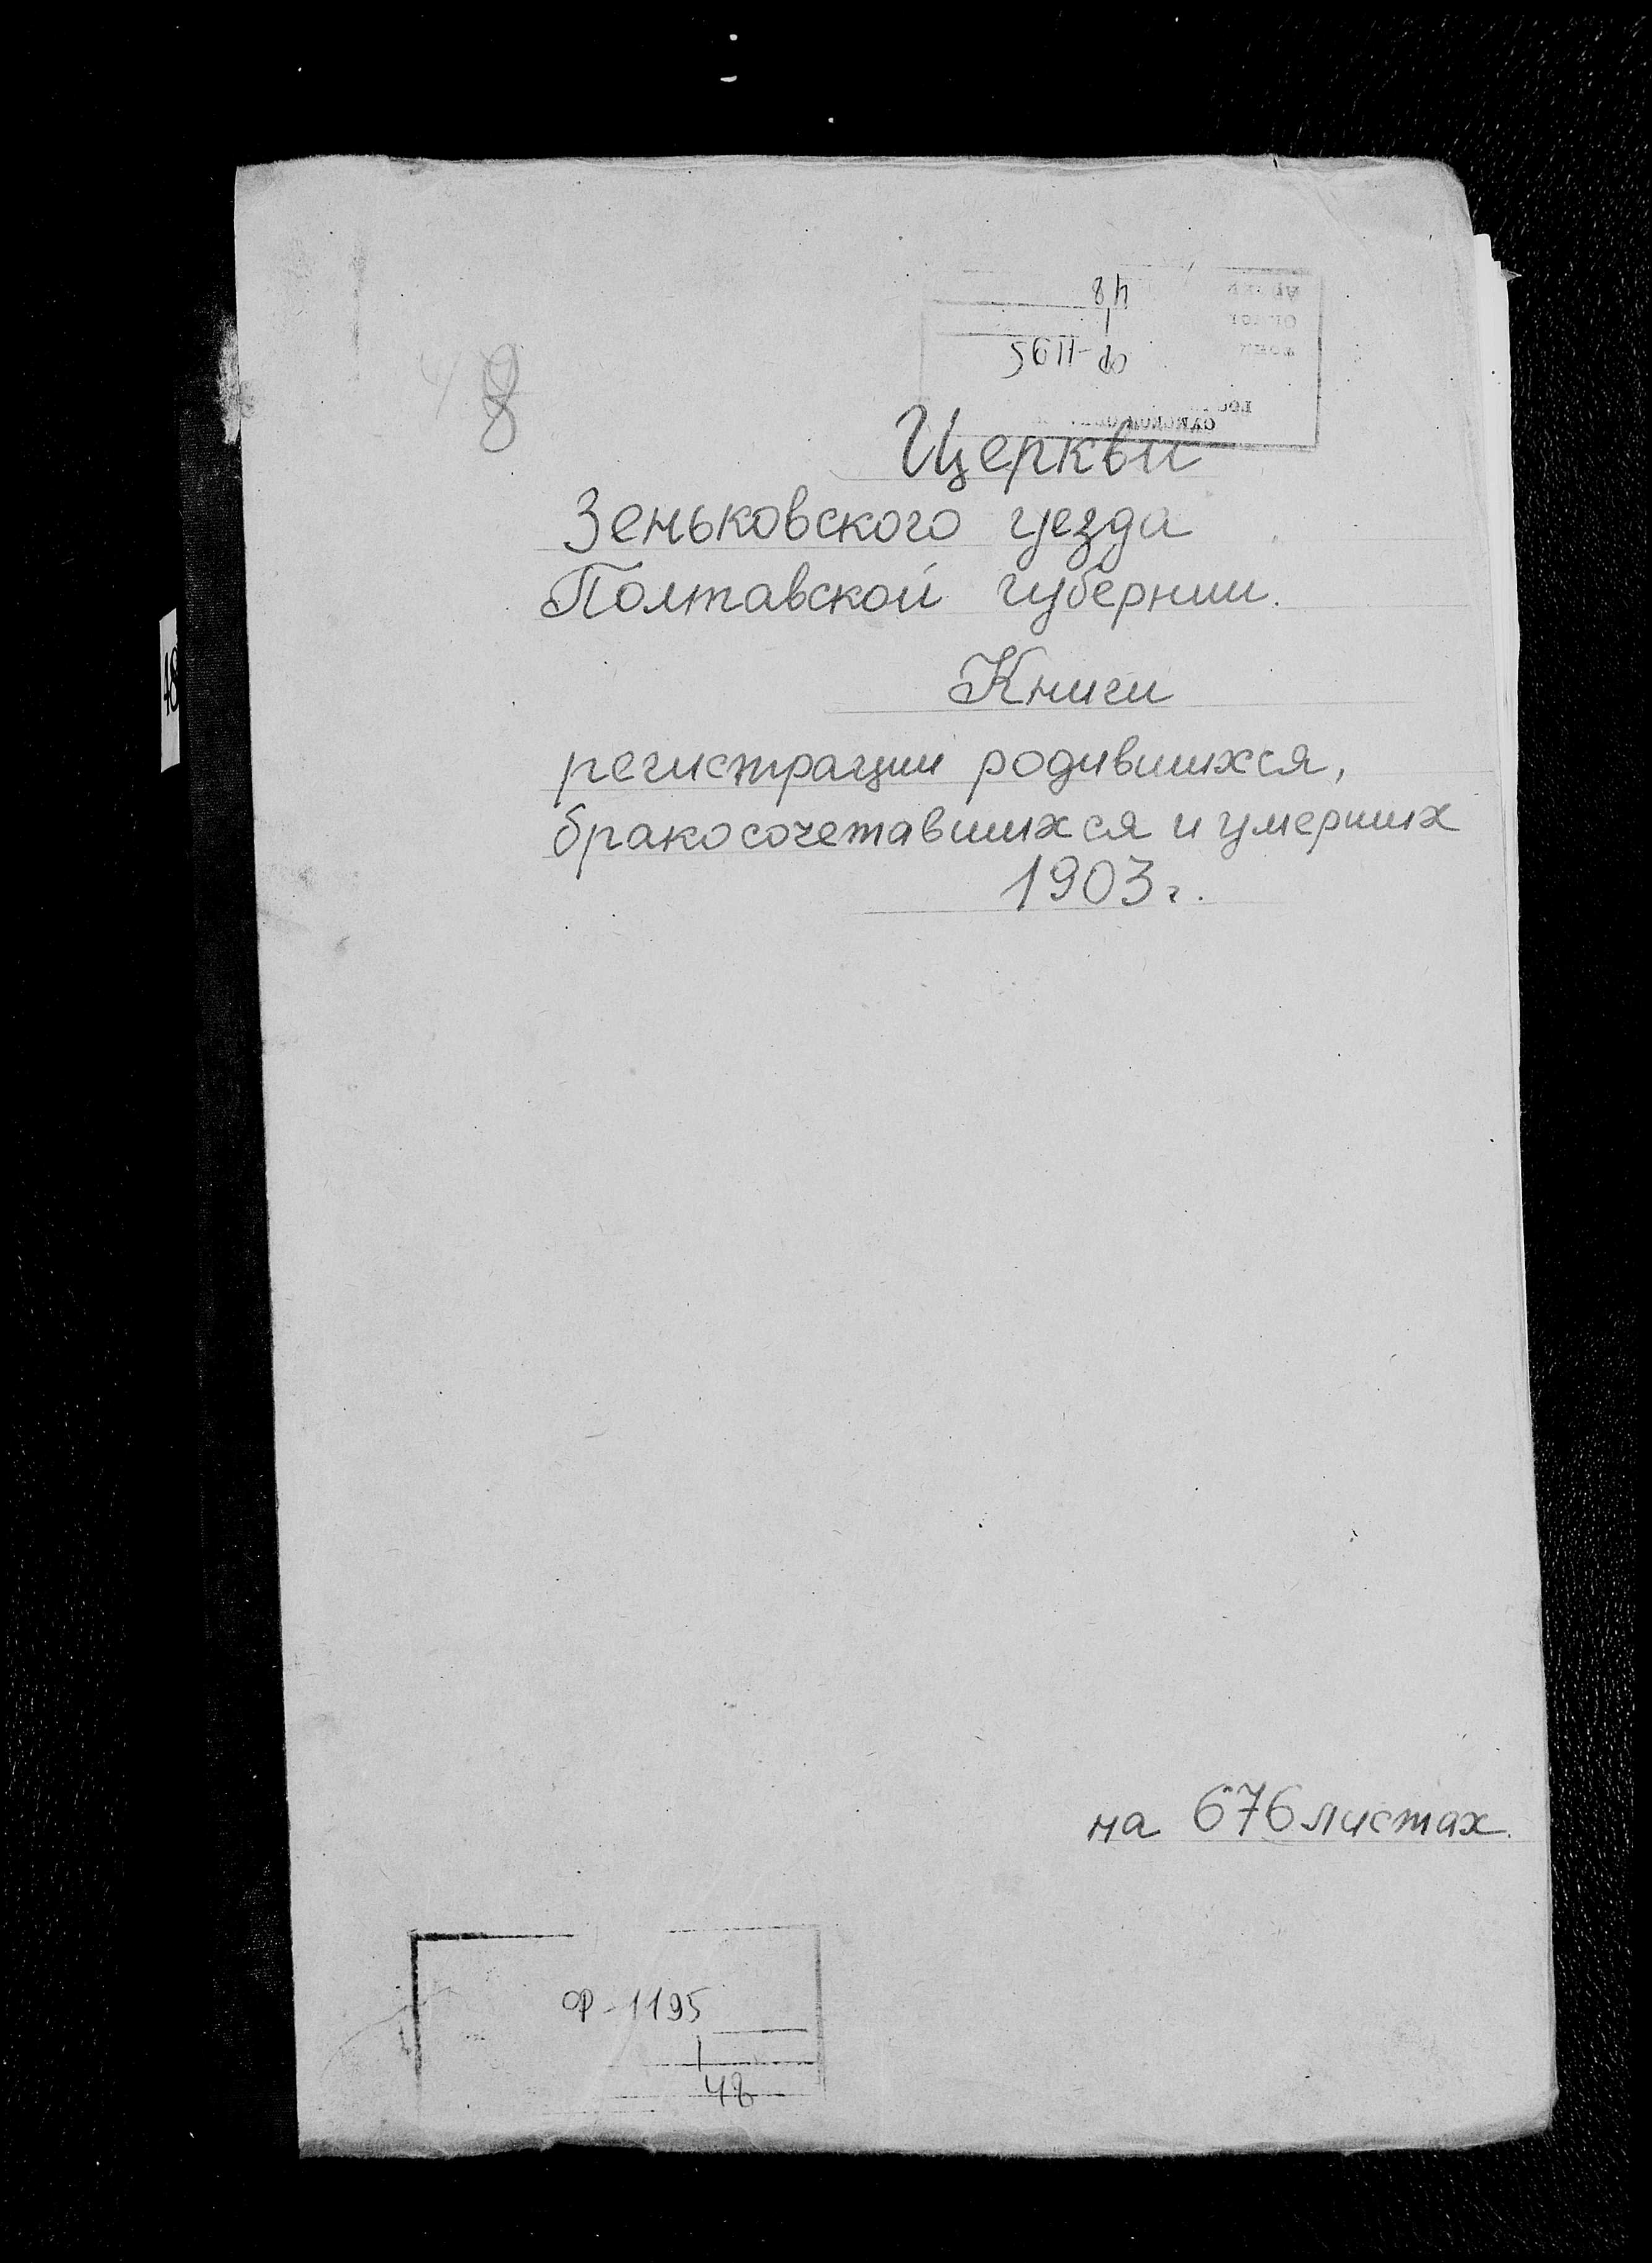 48
1
Ф-1195
8
Церкви
Зеньковского уезда
Полтавской губернии.
Книги
регистрации родившихся,
бракосочетавшихся и умерших
1903 г.
48
на 676 листах.
Ф-1195
1
48